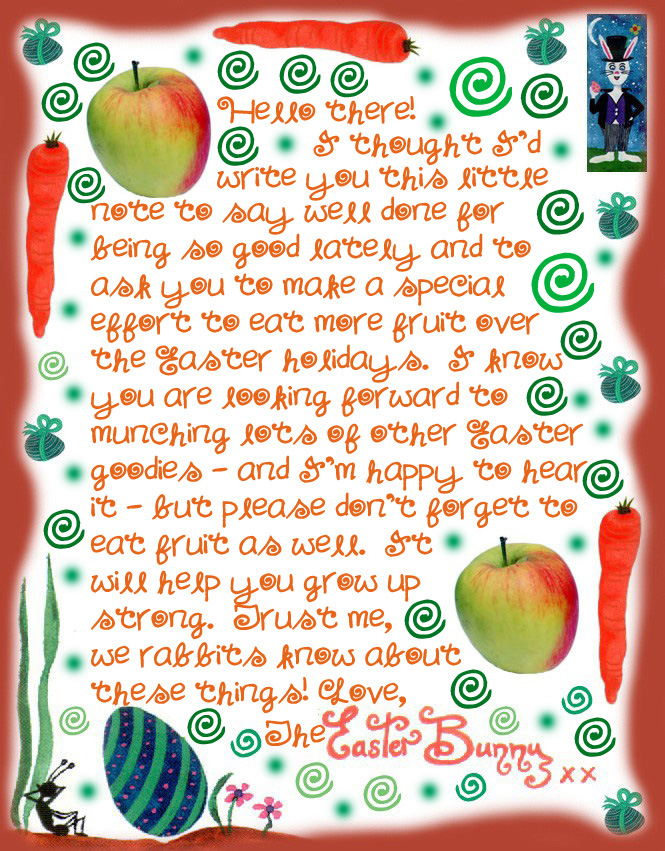 Hello there!
I thought I'd
write you this little
note to say well done for
being so good lately and to
ask you to make a special
effort to eat more fruit over
the Easter holidays. I know
you are looking forward to
munching lots of other Easter
goodies - and I'm happy to hear
it - but please don't forget to
eat fruit as well. It
will help you grow up
strong. Trust me,
we rabbits know about
these things! Love,
The Easter Bunny xx